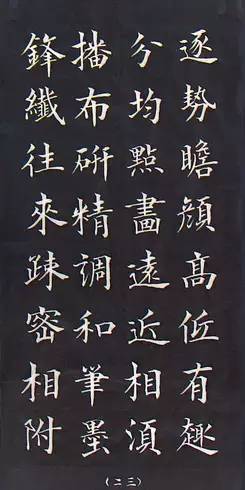 逐勢瞻顔高低有趣
分均點畫遠近相須
播布研精調和筆墨
鋒纖往來疎密相附
(二三)